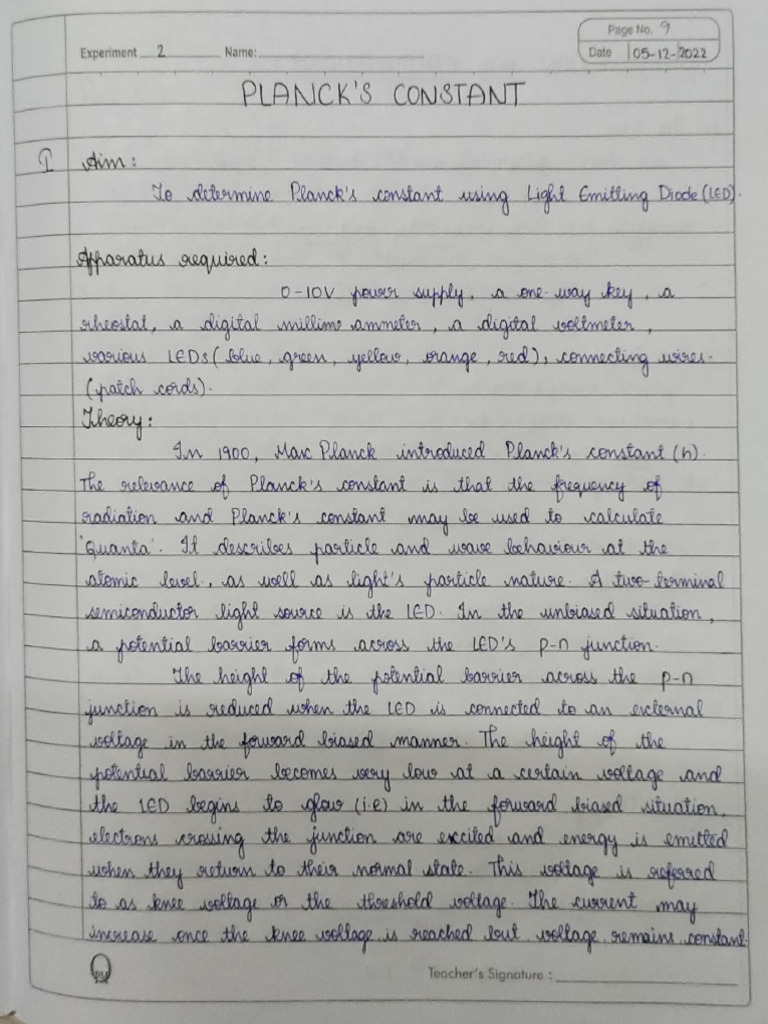 Page No. 9
Experiment 2 Name:
Date 05-12-2022
PLANCK'S CONSTANT
I Aim:
To determine Planck's constant using Light Emitting Diode (LED).
Apparatus required:
0-10V power supply, a one-way key, a
rheostat, a digital millime ammeter, a digital voltmeter,
various LEDs (blue, green, yellow, orange, red), connecting wires.
(patch cords).
Theory:
In 1900, Max Planck introduced Planck's constant (h).
The relevance of Planck's constant is that the frequency of
radiation and Planck's constant may be used to calculate
'Quanta'. It describes particle and wave behaviour at the
atomic level, as well as light's particle nature. A two-terminal
semiconductor light source is the LED. In the unbiased situation,
a potential barrier forms across the LED's p-n junction.
The height of the potential barrier across the p-n
junction is reduced when the LED is connected to an external
voltage in the forward biased manner. The height of the
potential barrier becomes very low at a certain voltage and
the LED begins to glow (i.e) in the forward biased situation,
electrons crossing the junction are excited and energy is emitted
when they return to their normal state. This voltage is referred
to as knee voltage or the threshold voltage. The current may
increase once the knee voltage is reached but voltage remains constant.
Teacher's Signature :